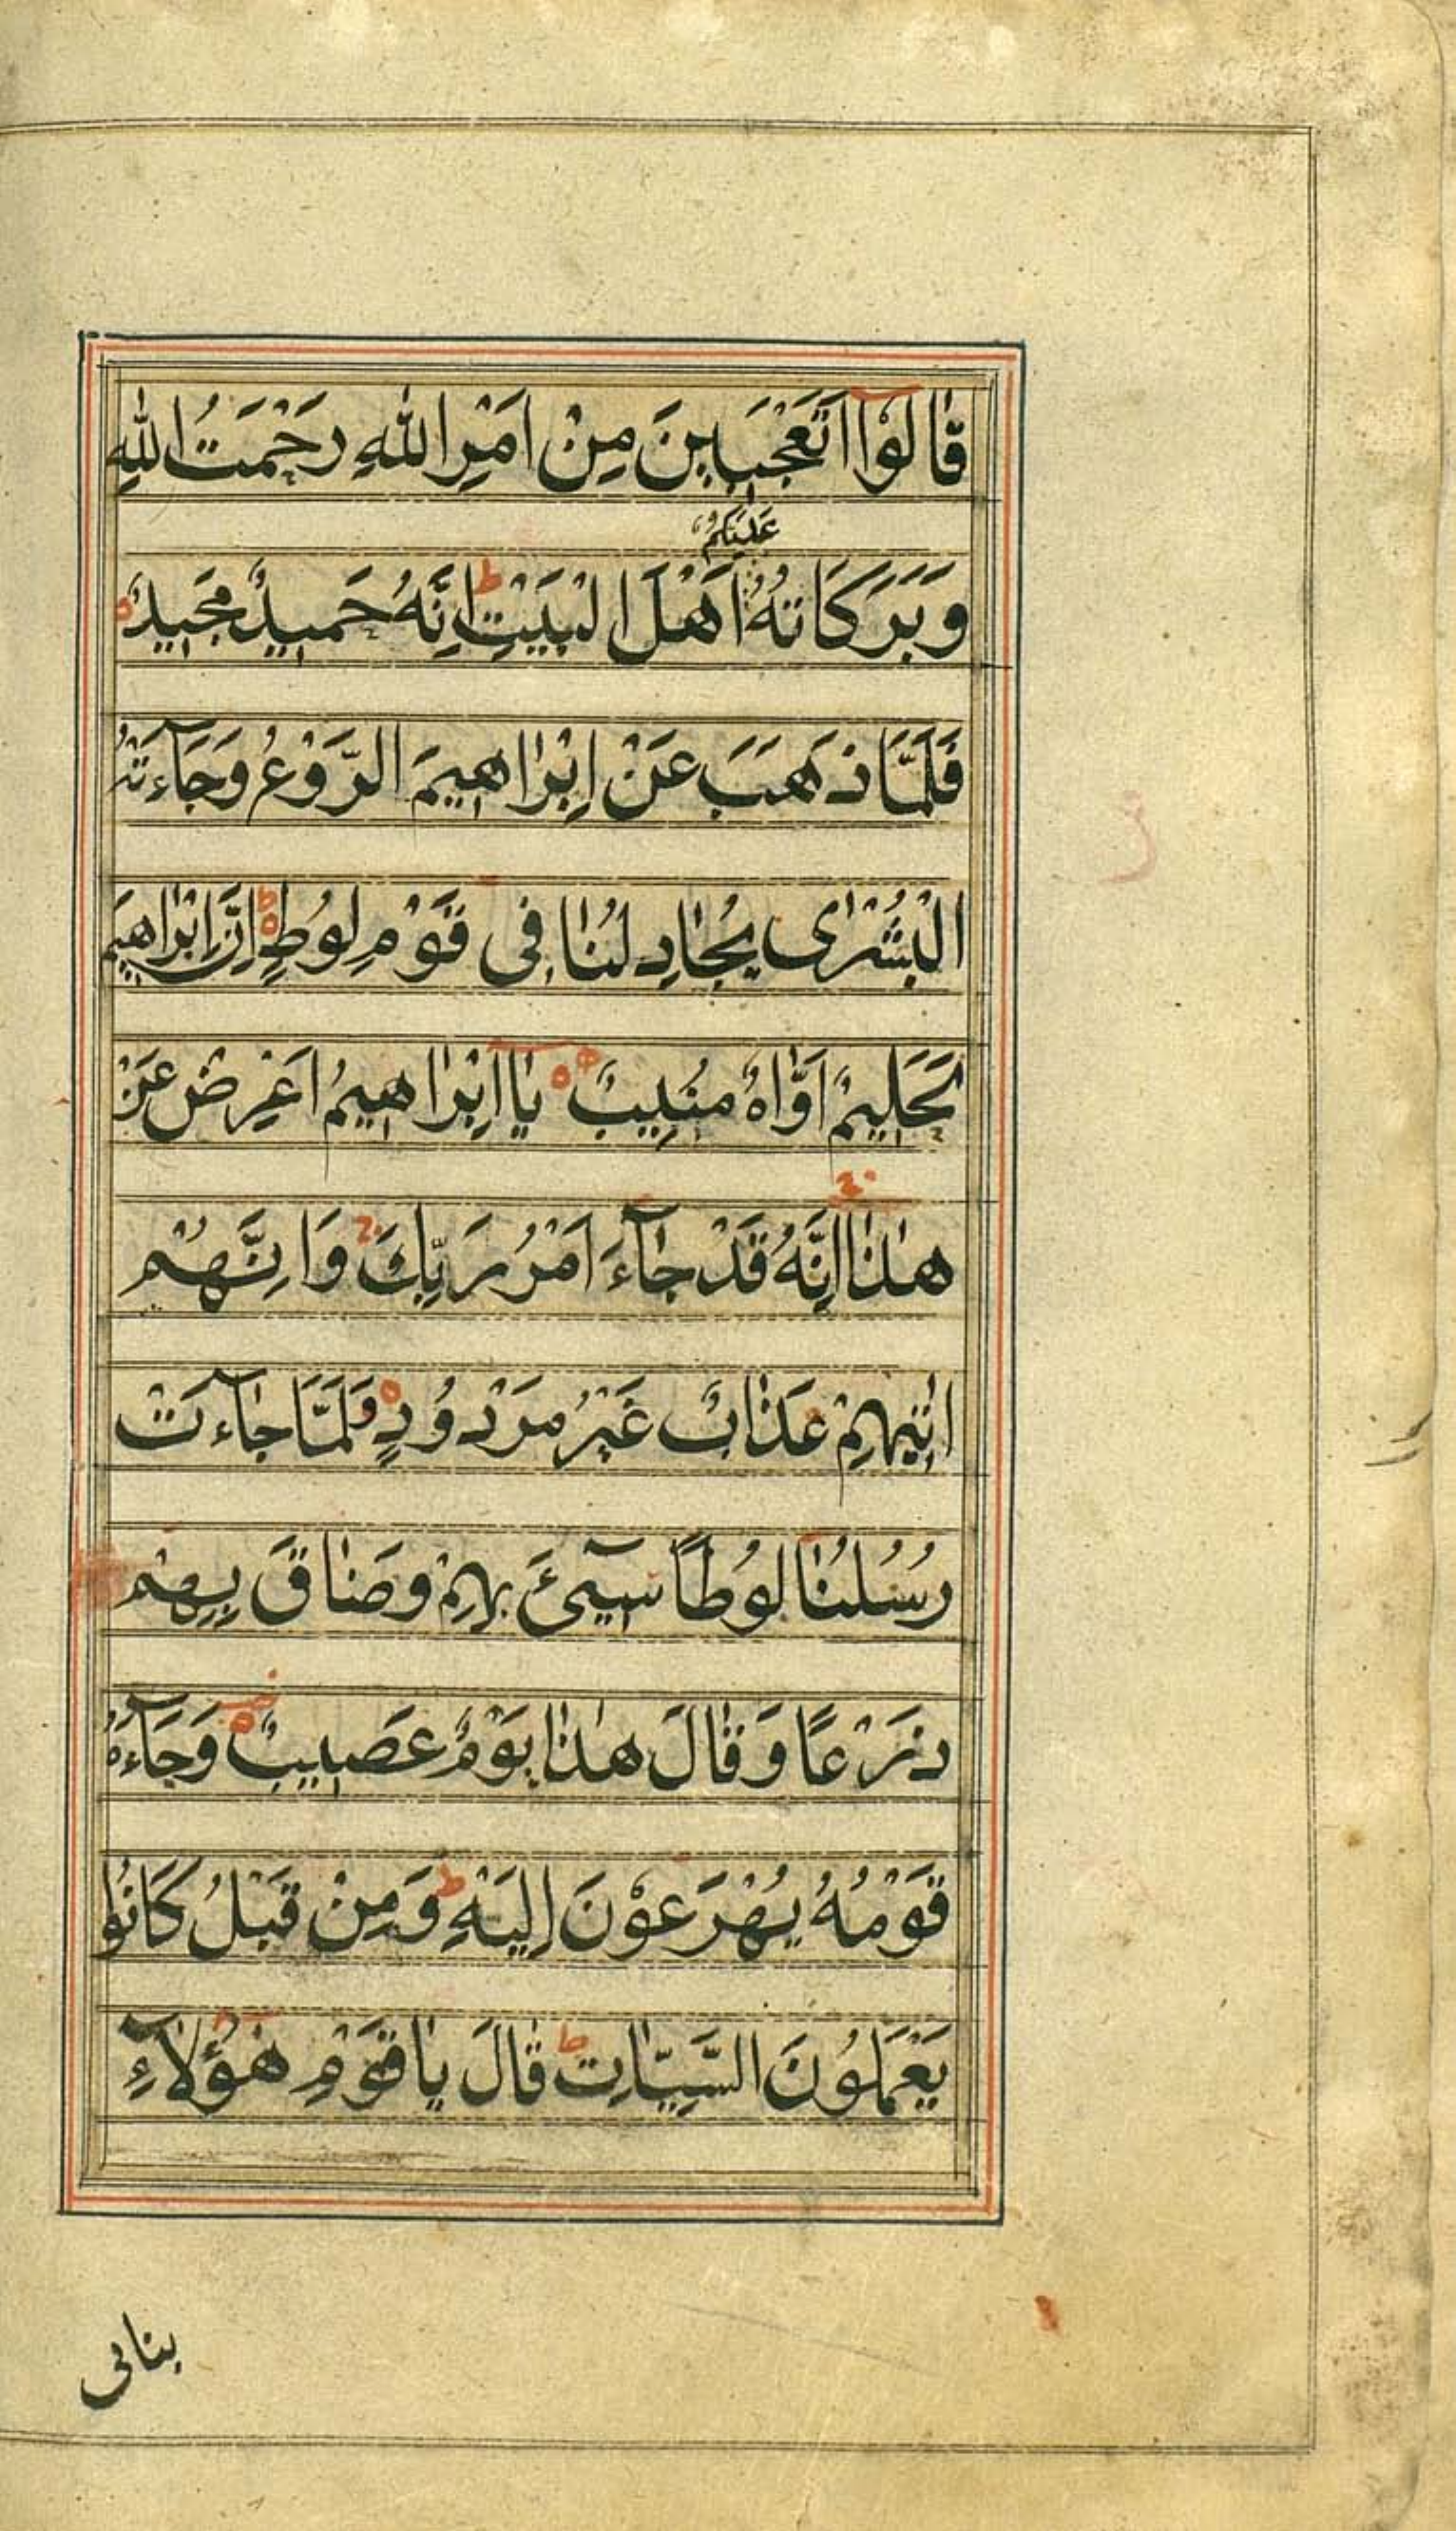 قَالُوْٓا اَتَعْجَبِيْنَ مِنْ اَمْرِ اللّٰهِ رَحْمَتُ اللّٰهِ
عَلَيْكُمْ
وَبَرَكَاتُهُ اَهْلَ الْبَيْتِ ط اِنَّهُ حَمِيدٌ مَجِيدٌ
فَلَمَّا ذَهَبَ عَنْ اِبْرَاهِيمَ الرَّوْعُ وَجَآءَتْهُ
الْبُشْرٰى يُجَادِلُنَا فِى قَوْمِ لُوطٍ ط اِنَّ اِبْرَاهِيمَ
لَحَلِيمٌ اَوَّاهٌ مُنِيبٌ يَآ اِبْرَاهِيمُ اَعْرِضْ عَنْ
هٰذَا اِنَّهُ قَدْ جَآءَ اَمْرُ رَبِّكَ ج وَاِنَّهُمْ
اٰتِيهِمْ عَذَابٌ غَيْرُ مَرْدُودٍ وَلَمَّا جَآءَتْ
رُسُلُنَا لُوطًا سِىٓءَ بِهِمْ وَضَاقَ بِهِمْ
ذَرْعًا وَقَالَ هٰذَا يَوْمٌ عَصِيبٌ وَجَآءَهُ
قَوْمُهُ يُهْرَعُوْنَ اِلَيْهِ ط وَمِنْ قَبْلُ كَانُوا
يَعْمَلُونَ السَّيِّاٰتِ ط قَالَ يَا قَوْمِ هٰٓؤُلَآءِ
بناتى